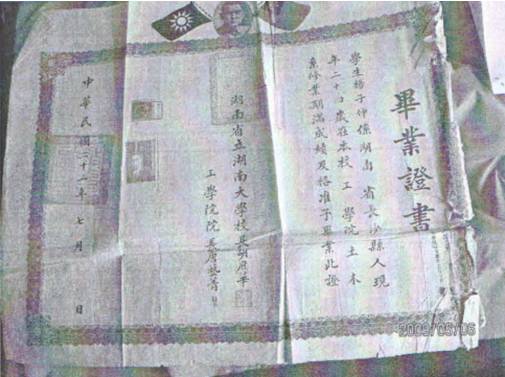 畢業證書
學生楊子仲係湖南省長沙縣人現
年二十四歲在本校工學院土木
系修業期滿成績及格准予畢業此證
湖南省立湖南大學校長胡庶華
工學院院長唐藝菁
中華民國二十一年七月 日
2009/05/06